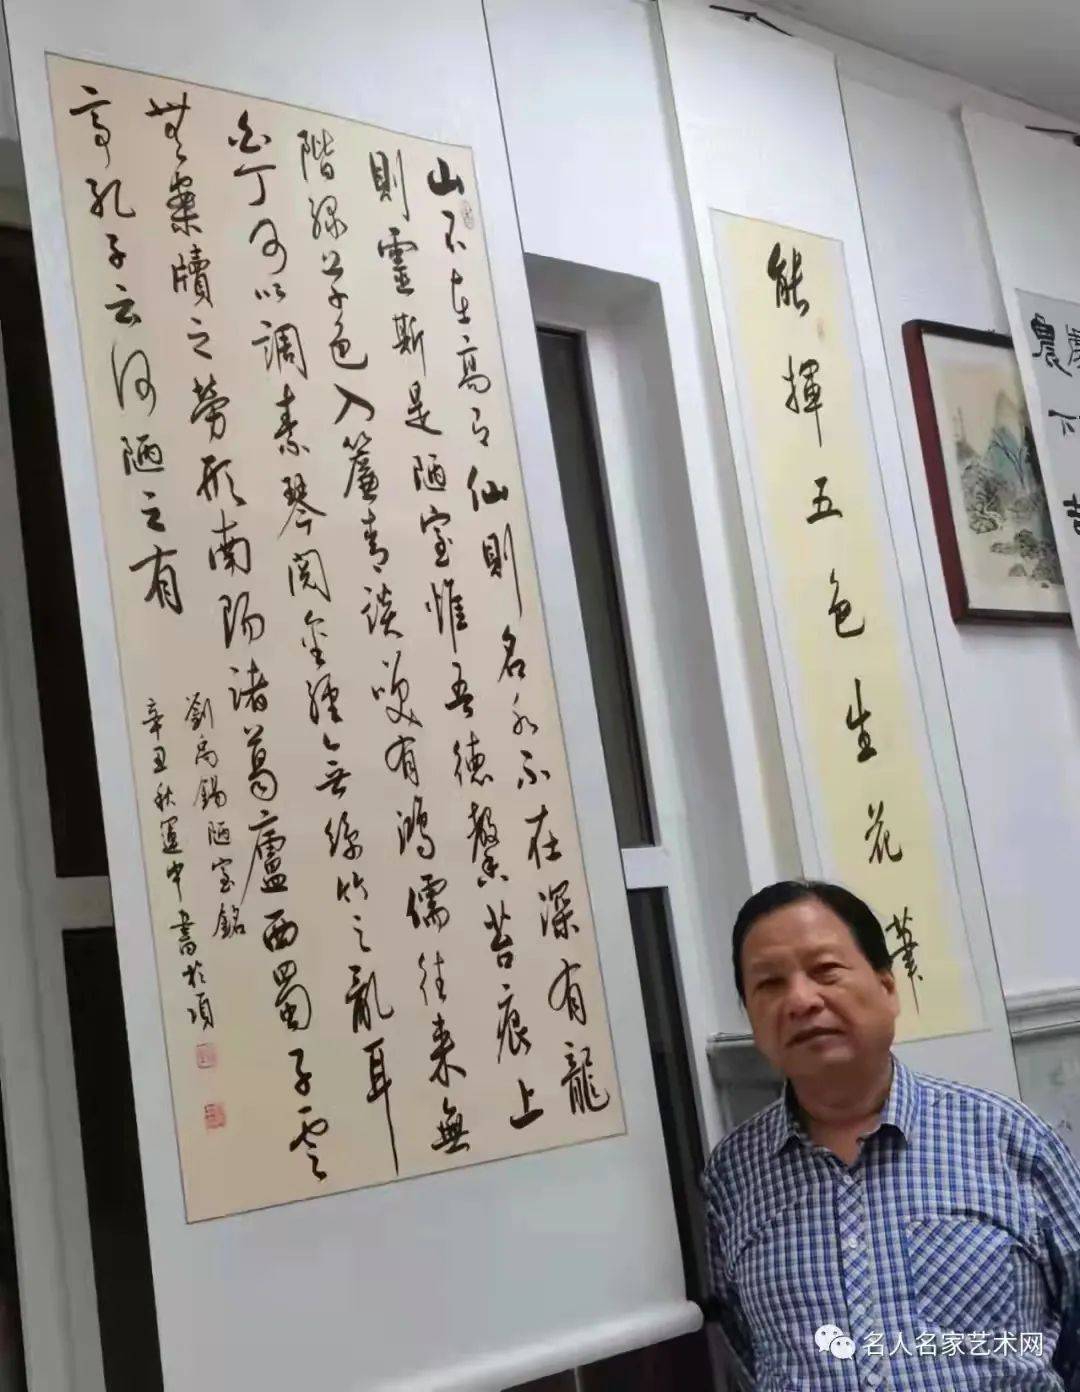 山不在高有仙則名水不在深有龍
則靈斯是陋室惟吾德馨苔痕上
階綠草色入簾青談笑有鴻儒往來無
白丁可以調素琴閱金經無絲竹之亂耳
無案牘之勞形南陽諸葛廬西蜀子雲
亭孔子云何陋之有
劉禹錫陋室銘
辛丑秋運中書於項
能揮五色生花筆
名人名家艺术网